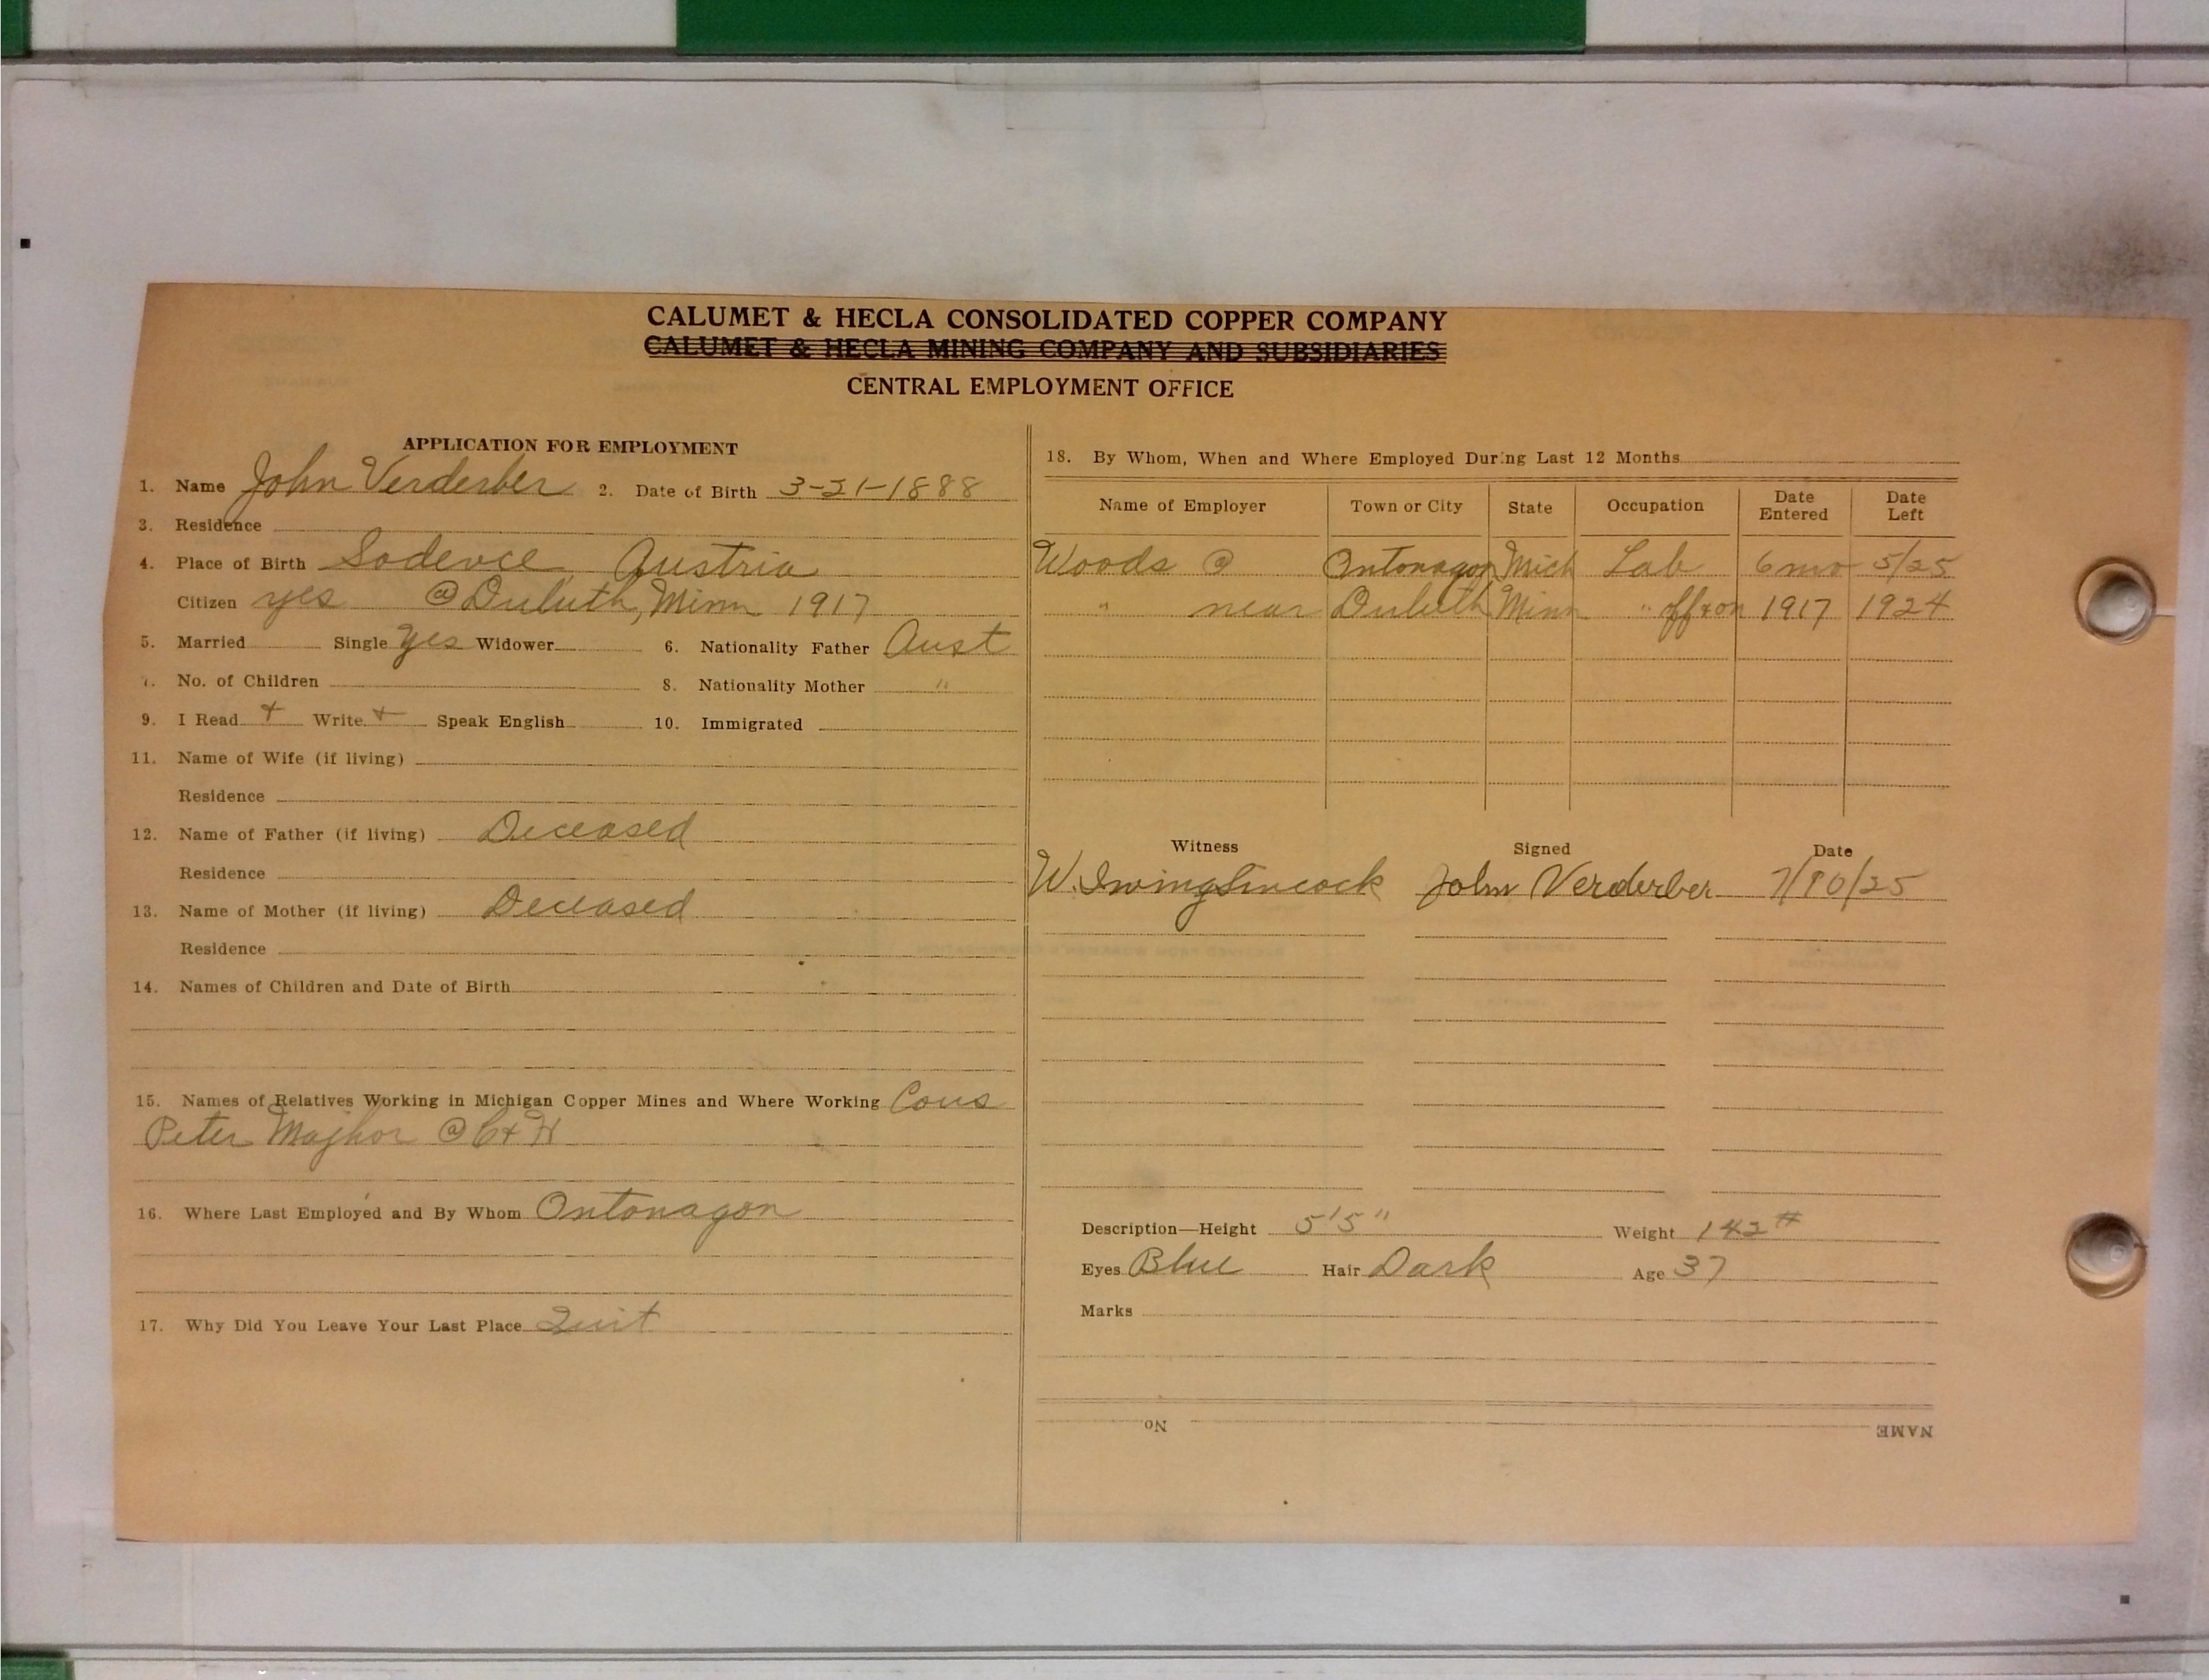 CALUMET & HECLA CONSOLIDATED COPPER COMPANY
CALUMET & HECLA MINING COMPANY AND SUBSIDIARIES
CENTRAL EMPLOYMENT OFFICE
APPLICATION FOR EMPLOYMENT
1. Name John Verderber 2. Date of Birth 3-21-1888
3. Residence
4. Place of Birth Sodevce Austria
Citizen yes @ Duluth, Minn 1917
5. Married Single yes Widower 6. Nationality Father Aust
7. No. of Children 8. Nationality Mother "
9. I Read + Write + Speak English 10. Immigrated
11. Name of Wife (if living)
Residence
12. Name of Father (if living) Deceased
Residence
13. Name of Mother (if living) Deceased
Residence
14. Names of Children and Date of Birth
15. Names of Relatives Working in Michigan Copper Mines and Where Working Cous
Peter Majhor @ C + H
16. Where Last Employed and By Whom Ontonagon
17. Why Did You Leave Your Last Place Quit
18. By Whom, When and Where Employed During Last 12 Months
Name of Employer Town or City State Occupation Date Entered Date Left
Woods @ Ontonagon Mich Lab 6 mo 5/25
" near Duluth Minn " off + on 1917 1924
Witness Signed Date
W. Irving John Verderber 7/10/25
Description—Height 5'5" Weight 142#
Eyes Blue Hair Dark Age 37
Marks
NAME No